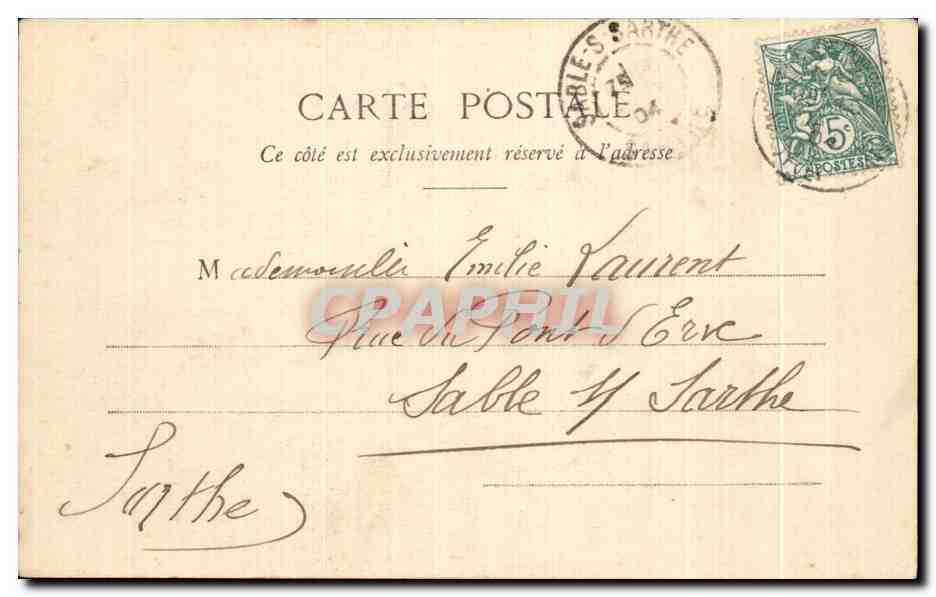 SABLE-S-SARTHE
04
5c
POSTES
CARTE POSTALE
Ce côté est exclusivement réservé à l'adresse
Mademoiselle Emilie Laurent
CPAPHIL
Rue du Pont d'Erve
Sable s/ Sarthe
Sarthe